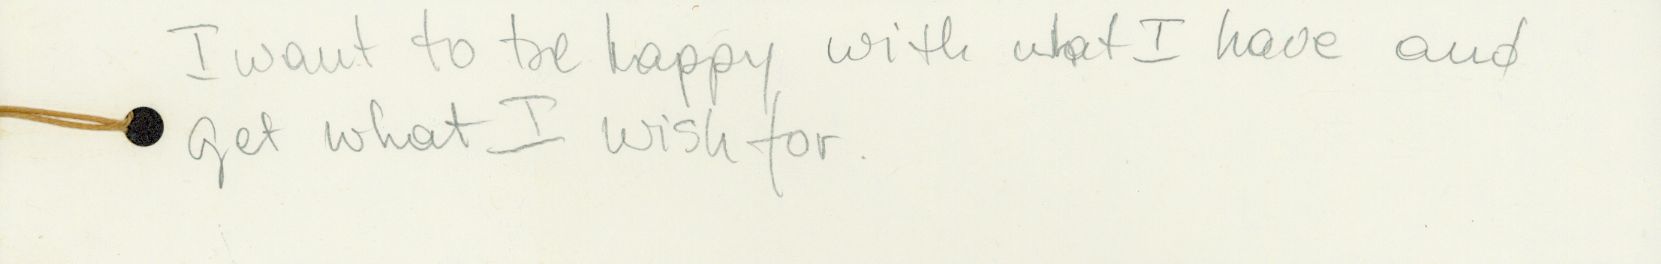 I want to be happy with what I have and
get what I wish for.